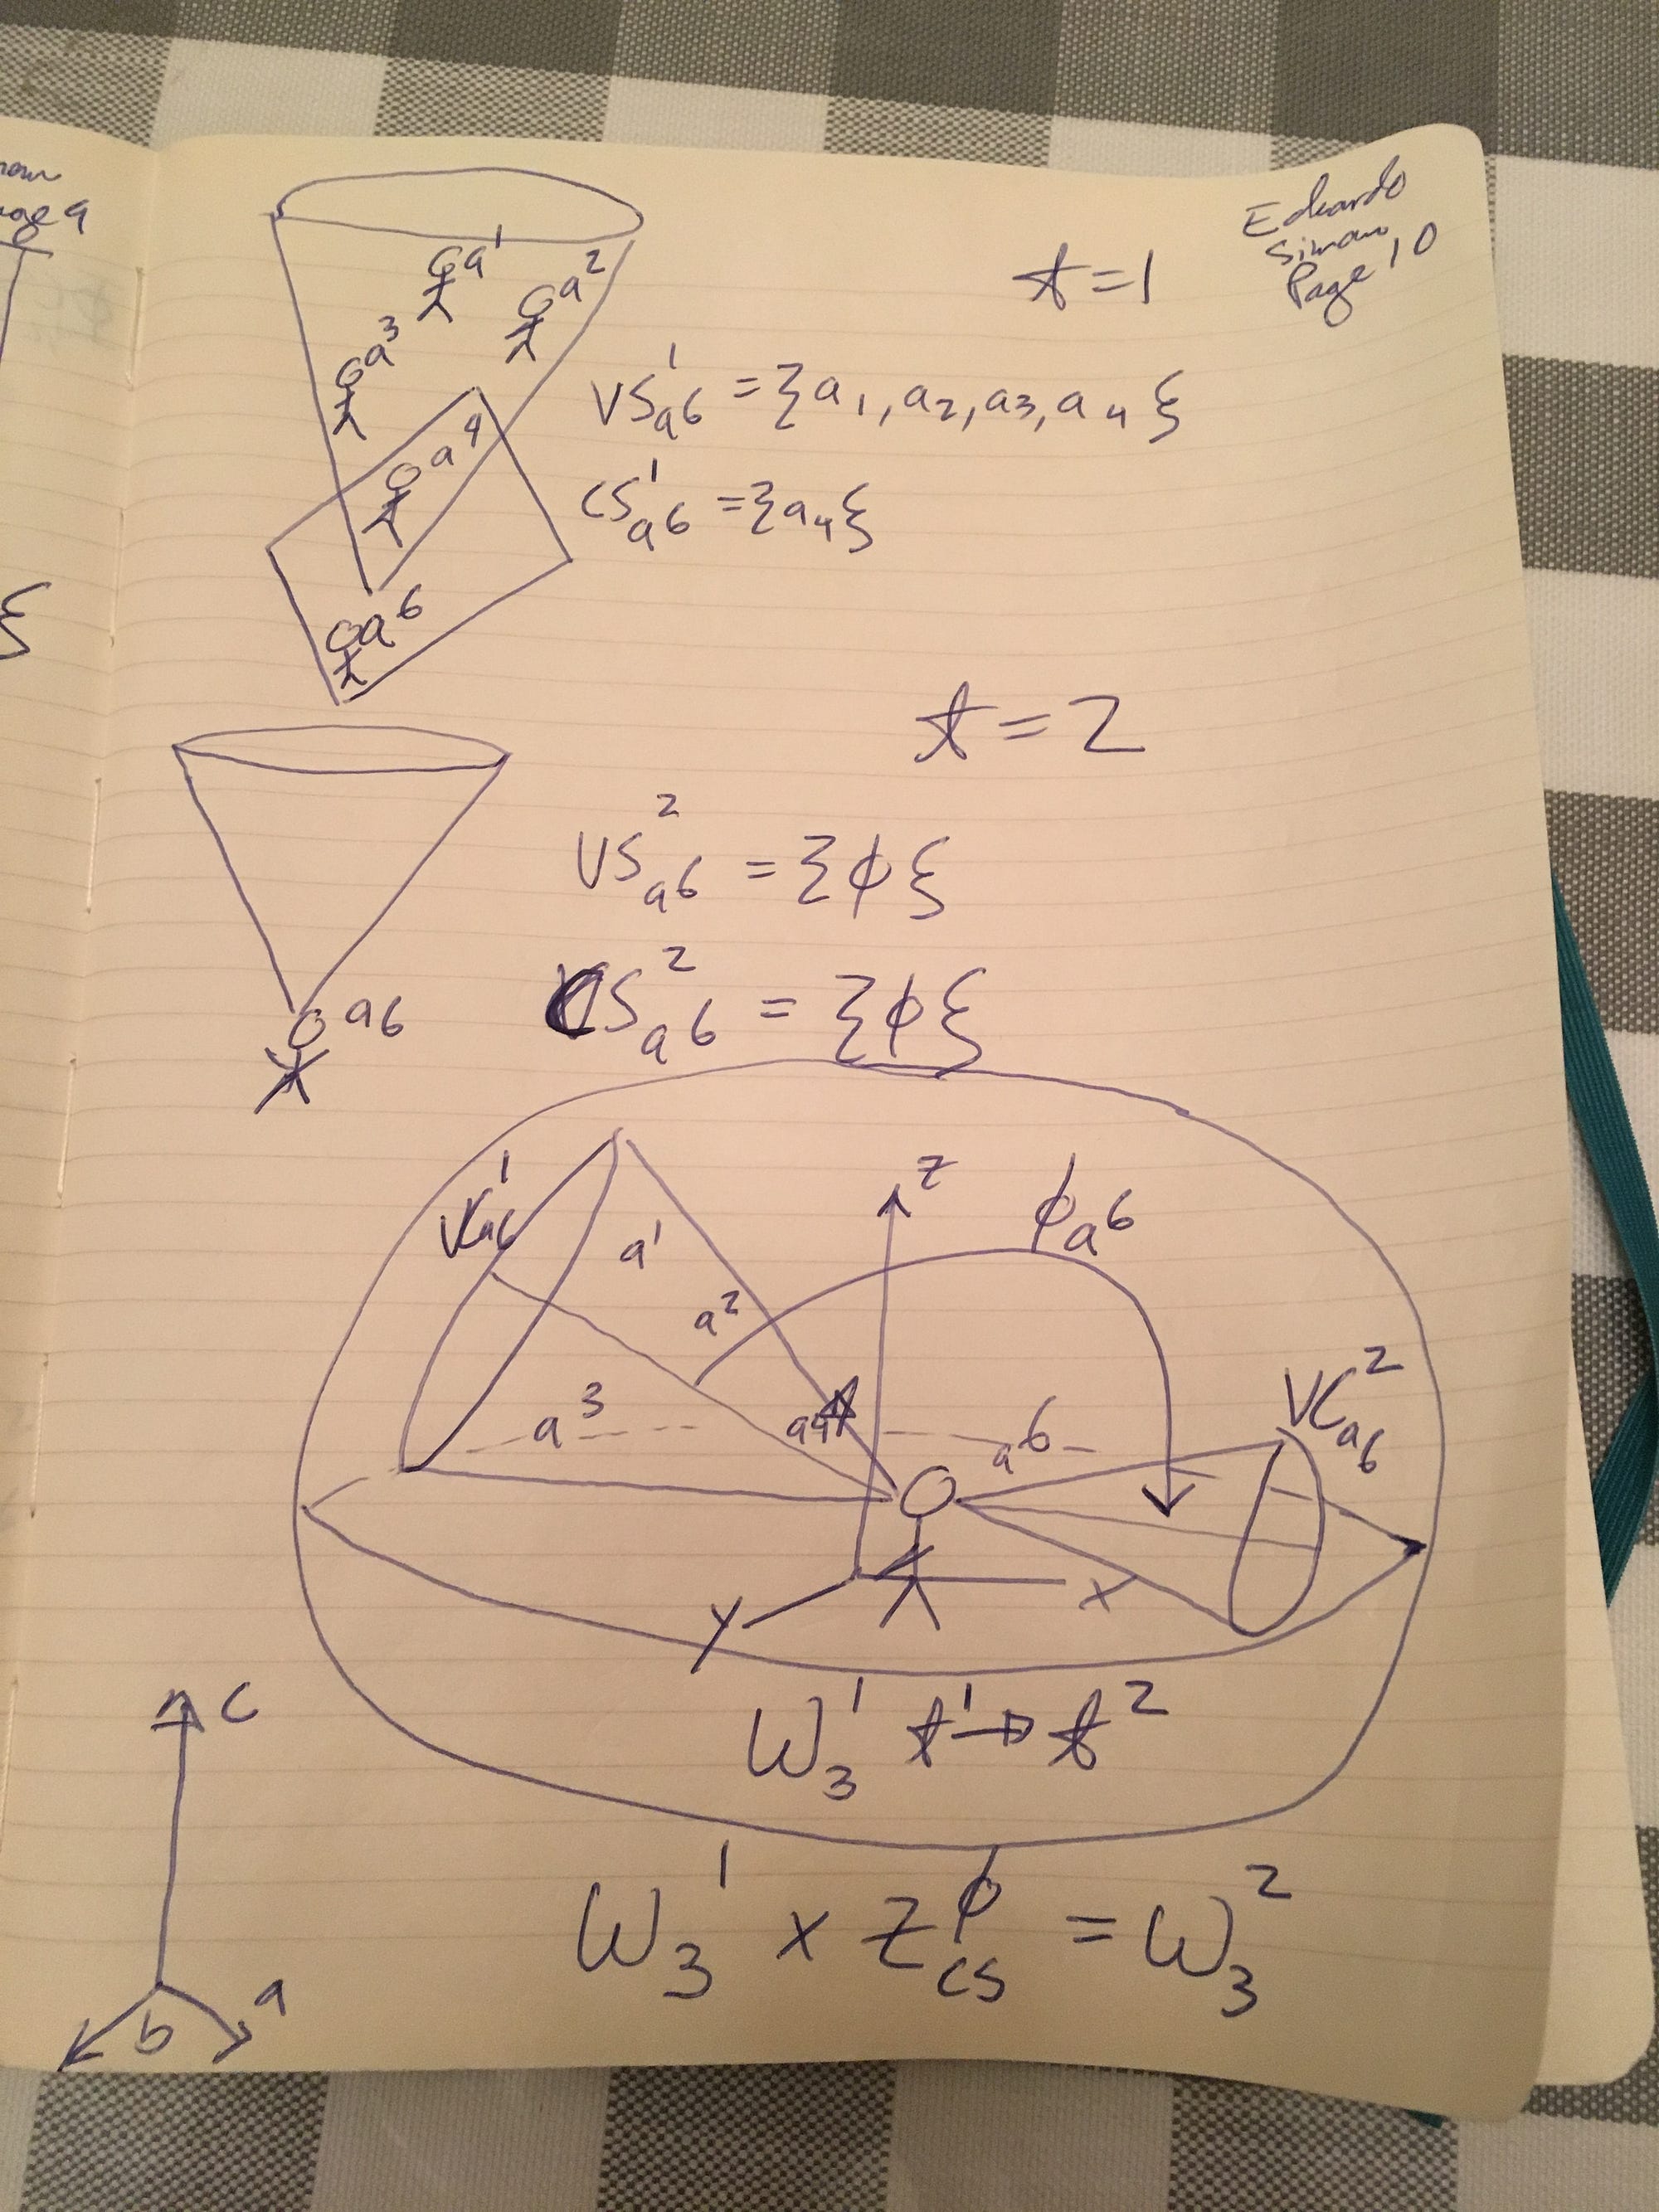 Eduardo
Simon
Page 10
page 9
t = 1
a^1
a^2
a^3
a^4
a^6
VS^1_{a6} = {a_1, a_2, a_3, a_4}
CS^1_{a6} = {a_4}
t = 2
VS^2_{a6} = {ϕ}
CS^2_{a6} = {ϕ}
a6
VC^1_{a6}
z
ϕ_{a6}
a^1
a^2
a^3
a4
a6
VC^2_{a6}
x
y
W^1_3 t^1 → t^2
c
W^1_3 x Z^ϕ_{CS} = W^2_3
a
b